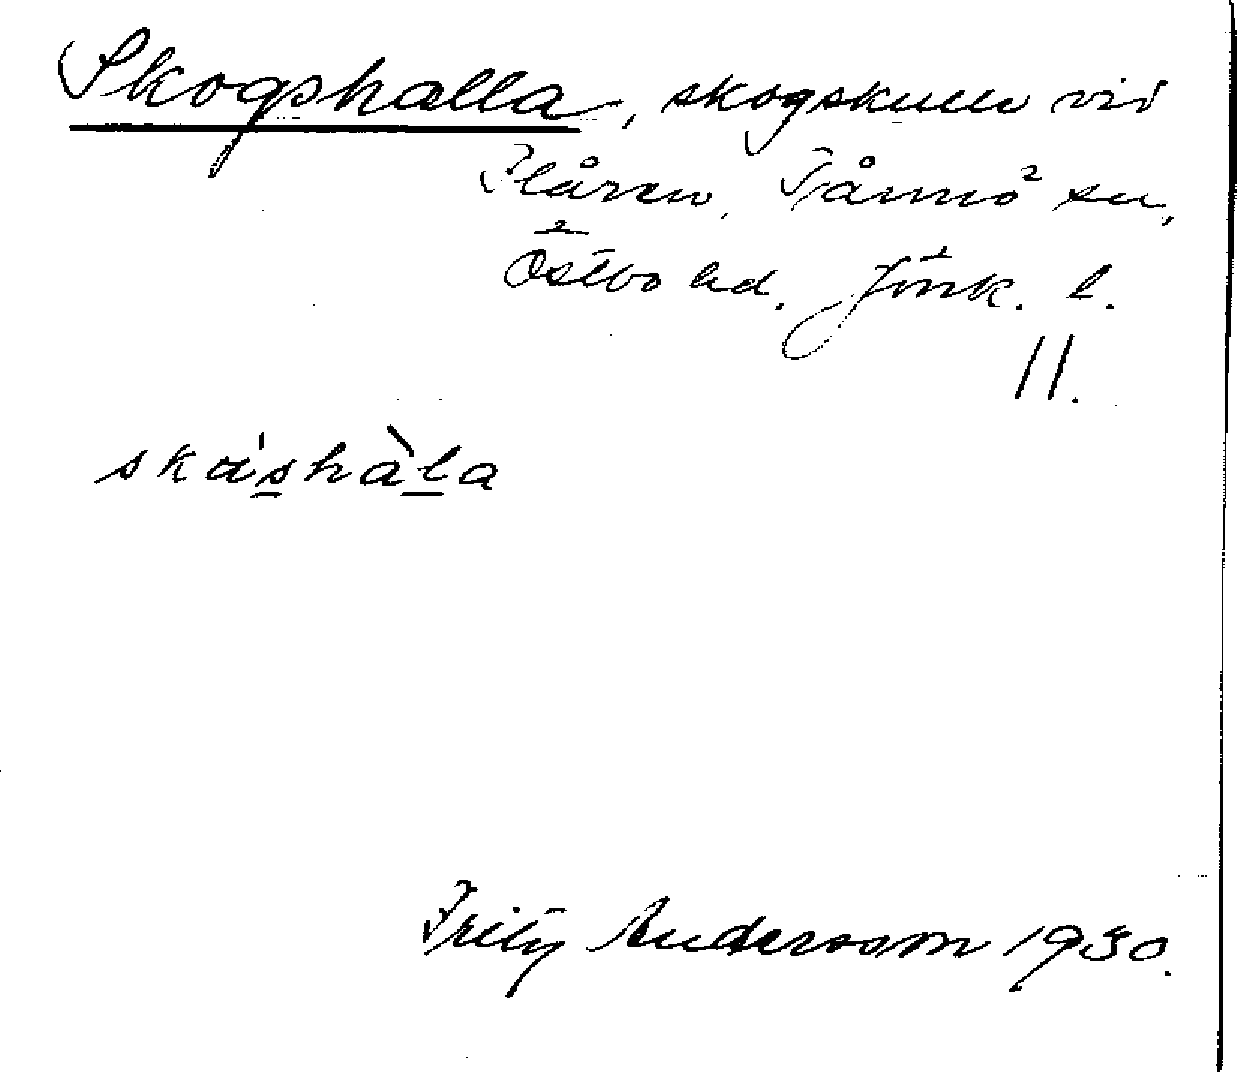 Skogshalla, skogskulle vid
Flåren, Tånnö sn,
Östbo hd. Jönk. l.
11.
skáshàla
Fritz Andersson 1930.